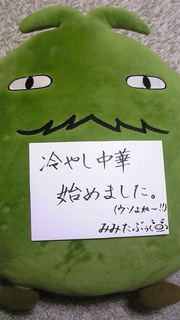 冷やし中華
始めました。
(ウソよね〜!!)
みみたぶぅ